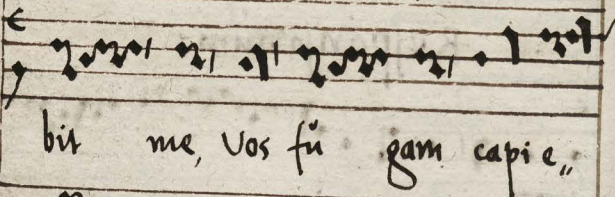 bit me, Vos fu gam capi e„